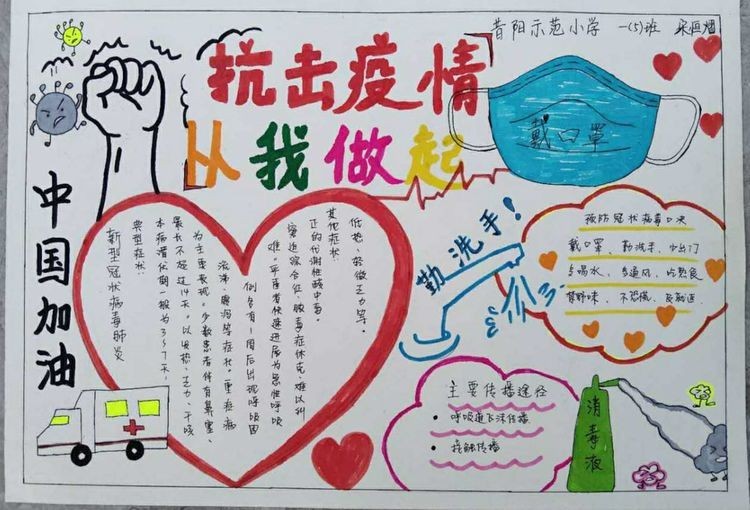 昔阳示范小学 一(5)班
抗击疫情
从我做起
戴口罩
中国加油
新型冠状病毒肺炎
典型症状:
本病潜伏期一般为3~7天,
最长不超过14天。以发热、乏力、干咳
为主要表现。少数患者伴有鼻塞、
流涕、腹泻等症状。重症病
例多有1周后出现呼吸困
难。严重者快速进展为急性呼吸
窘迫综合征、脓毒症休克、难以纠
正的代谢性酸中毒。
其他症状:
低热、轻微乏力等。
勤洗手!
预防冠状病毒口决
戴口罩、勤洗手、少出门
多喝水、多通风、吃熟食
禁野味、不恐慌、
主要传播途径
• 呼吸道飞沫传播
• 接触传播
消毒液